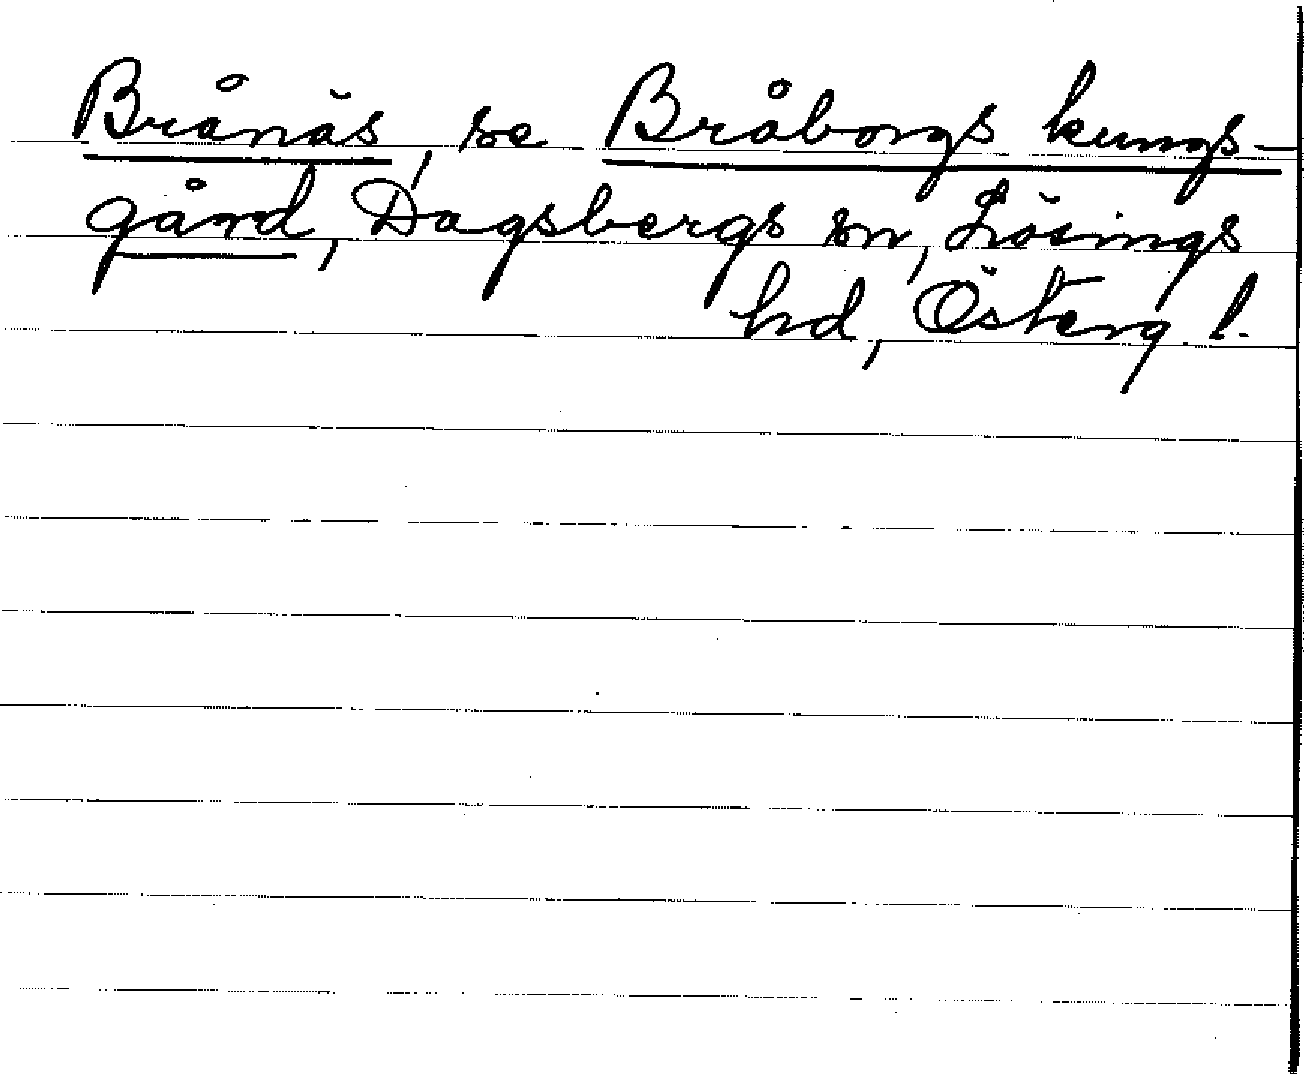 Brånäs, se Bråborgs kungs-
gård, Dagsbergs sn, Lösings
hd, Österg l.